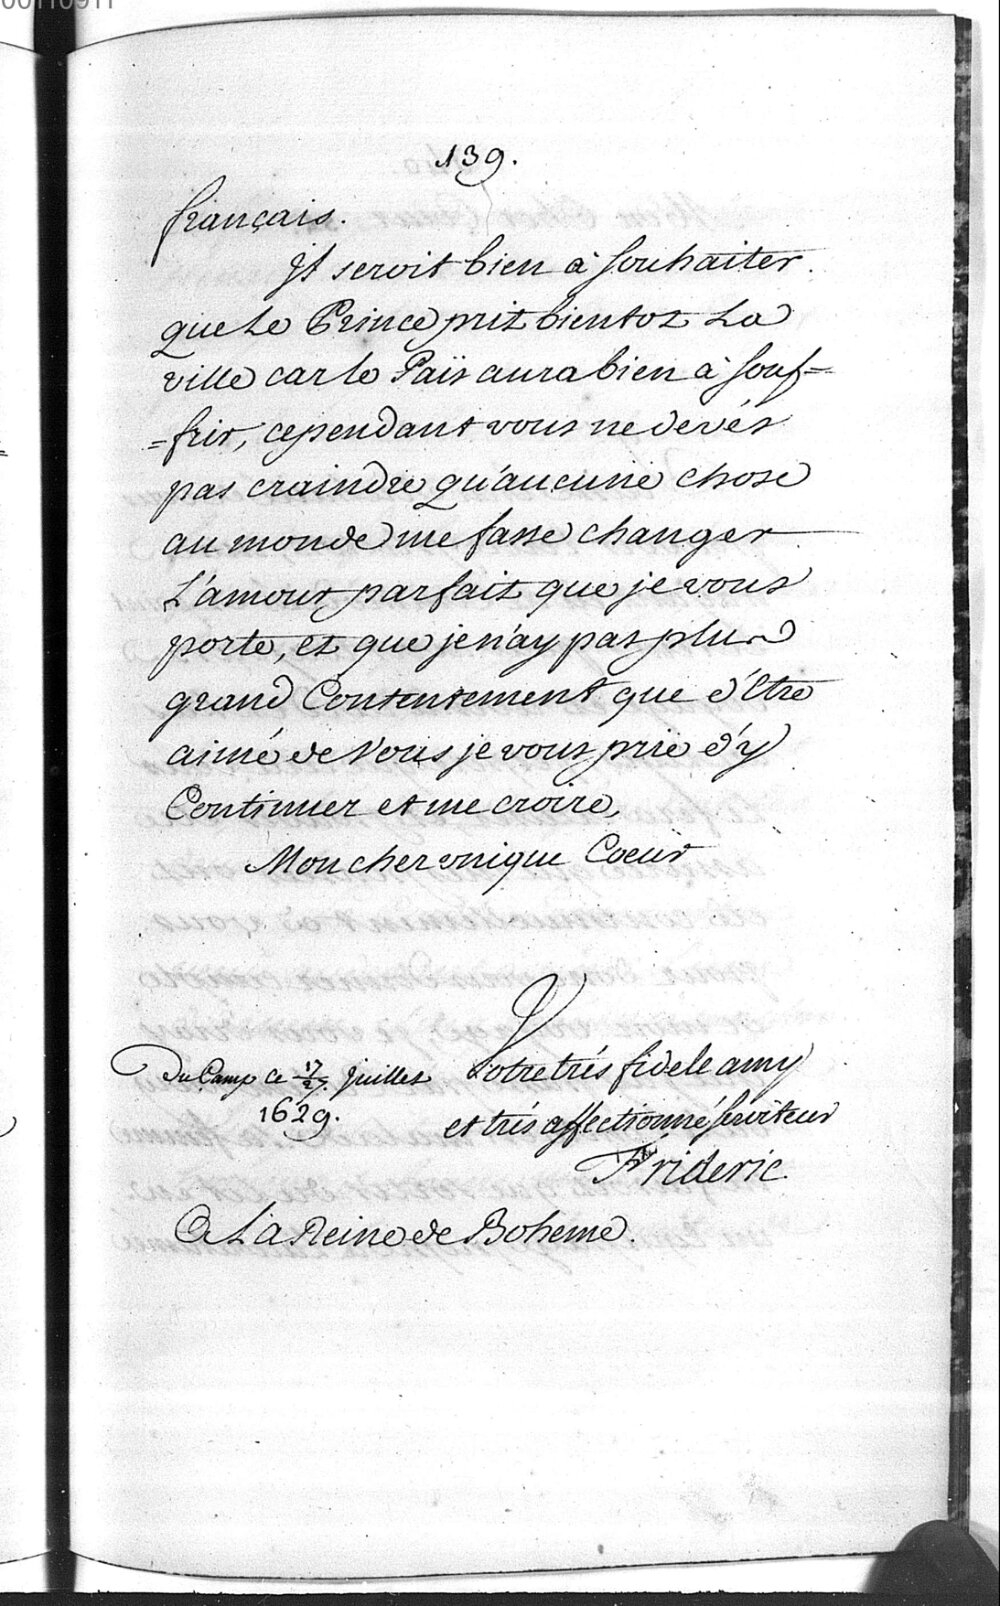 00110911
139.
français.
Il seroit bien à souhaiter
que le Prince prit bientot La
ville car le Païs aura bien à souf=
=frir, cependant vous ne devés
pas craindre qu'aucune chose
au monde me fasse changer
L'amour parfait que je vous
porte, et que je n'ay pas plus
grand Contentement que d'être
aimé de Vous je vous prie d'y
Continuer et me croire,
Mon cher unique Coeur
Votre trés fidele amy
et trés affectionné serviteur
Frideric
Du Camp ce 17/27. Juillet
1629.
A La Reine de Boheme.